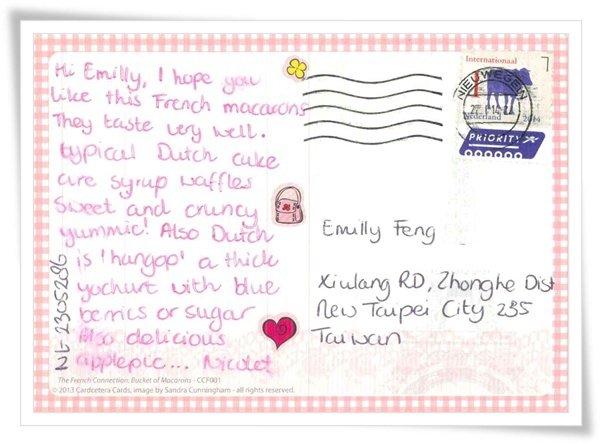 Hi Emilly, I hope you
like this French macarons
They taste very well.
typical Dutch cake
are syrup waffles
sweet and cruncy
yummie! Also Dutch
is 'hangop' a thick
yochurt with blue
berries or sugar
Also delicious
applepie... Nicolet
NL-2305286
The French Connection: Bucket of Macarons - CCF001
© 2013 Cardcetera Cards, image by Sandra Cunningham - all rights reserved.
Internationaal
1
NIEUWEGEIN
Nederland 2014
PRIORITY
Emilly Feng
Xiulang RD, Zhonghe Dist
New Taipei City 235
Taiwan